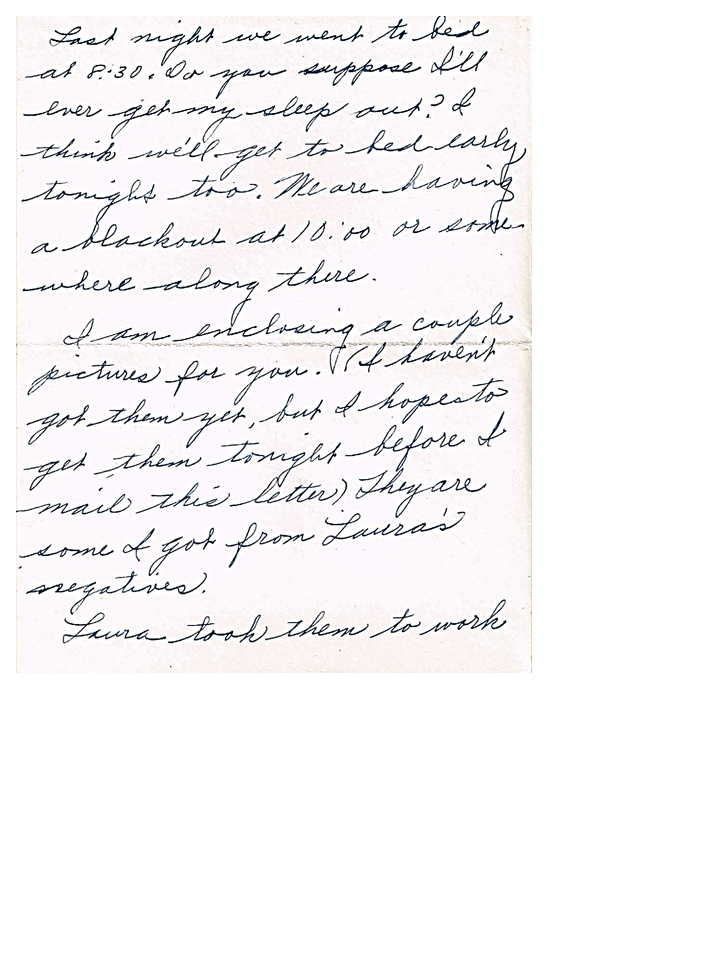 Last night we went to bed
at 8:30. Do you suppose I'll
ever get my sleep out? I
think we'll get to bed early
tonight too. We are having
a blackout at 10:00 or some
where along there.
I am enclosing a couple
pictures for you. (I haven't
got them yet, but I hope to
get them tonight before I
mail this letter) They are
some I got from Laura's
negatives.
Laura took them to work